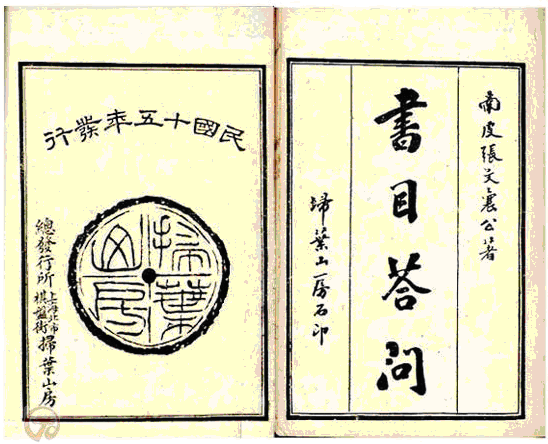 南皮張文襄公著
書目荅問
埽葉山房石印
民國十五年發行
掃葉山房
總發行所上海北市棋盤街掃葉山房